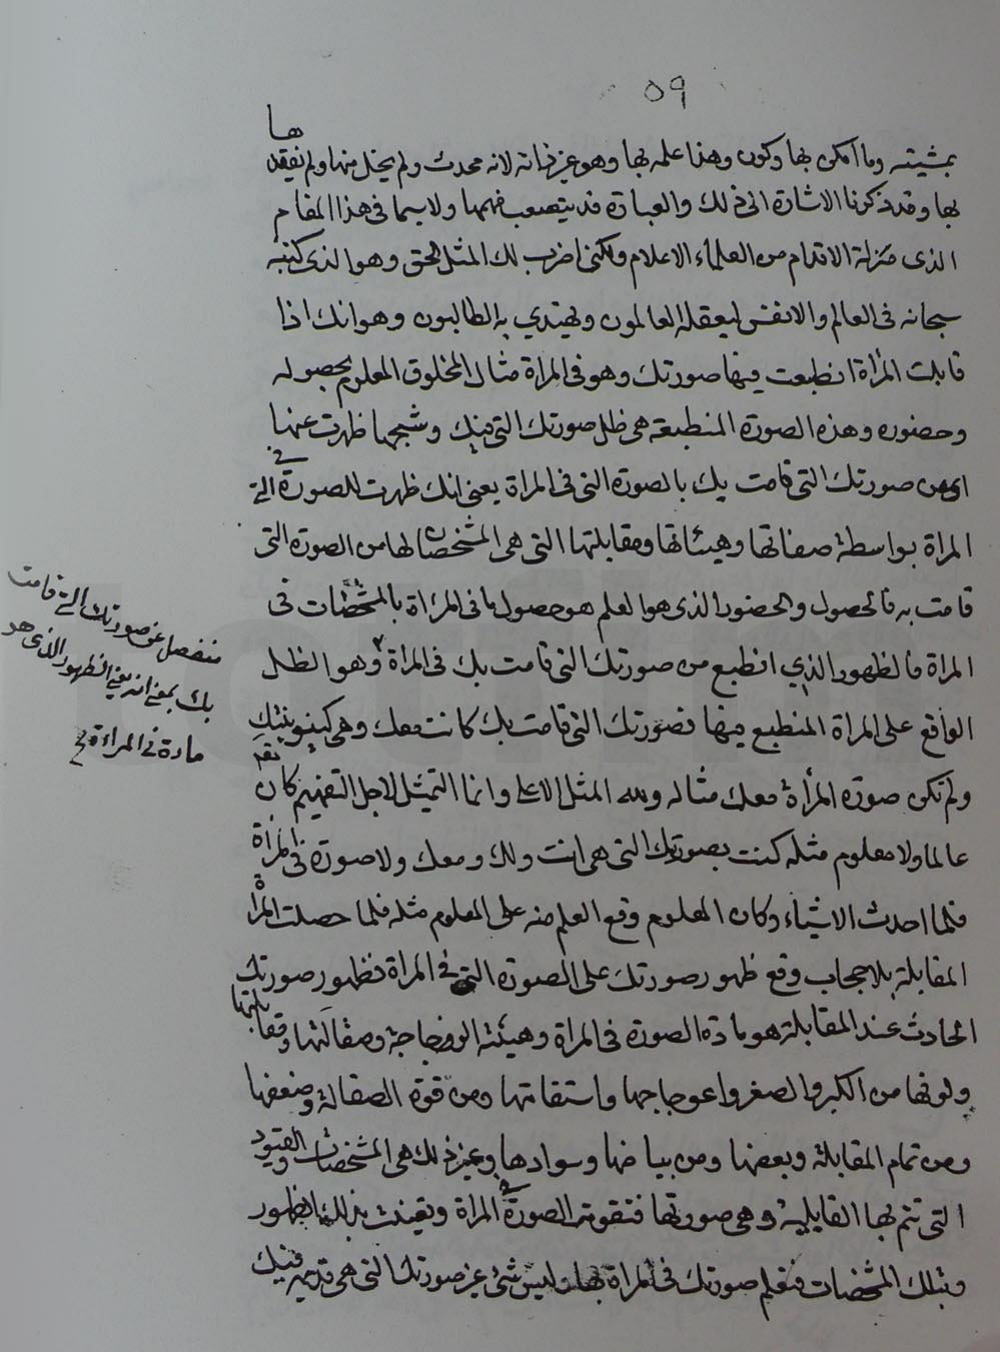 ٥٩
ها
بمشيته وما امكن بها وكون وهذا علمه بها وهو غير ذاته لانه محدث ولم يخل منها ولم يفقد
بها وقد ذكرنا الاشارة الى ذلك والعبارة قد يتصعب فهمها ولا سيما فى هذا المقام
الذى مزلة الاقدام من العلماء الاعلام ولكنى اضرب لك المثل الحق وهو الذى كتبه
سبحانه فى العالم والانفس ليعقله العالمون ويهتدي به الطالبون وهو انك اذا
قابلت المرآة انطبعت فيها صورتك وهو فى المراة مثال المخلوق المعلوم بحصوله
وحضوره وهذه الصورة المنطبعة هى ظل صورتك التى فيك وشبحها ظهرت عنها
اى من صورتك التى قامت بك بالصورة التى فى المراة يعنى انك ظهرت للصورة التى فى
المراة بواسطة صفاتها وهيئاتها ومقابلتها التى هى المشخصات لها من الصورة التى
قامت به فالحصول والحضور الذى هو العلم هو حصول ما فى المرءاة بالمشخصات فى
المراة فالظهور الذي انطبع من صورتك التى قامت بك فى المراة وهو الظل
منفصل عن صورتك التى قامت
بك بمعنى انه يعنى الظهور الذى هو
مادة فى المراءة
الواقع على المراة المنطبع فيها فصورتك التى قامت بك كانت معك وهى كينونيتك
ولم تكن صورة المرأة معك مثاله ولله المثل الاعلى وانما التمثيل لاجل التفهيم كان
عالما ولا معلوم مثله كنت بصورتك التى هى انت ولك ومعك ولا صورة فى المرآة
فلما احدث الاشياء وكان المعلوم وقع العلم منه على المعلوم مثله فلما حصلت المرأ
المقابلة بلا حجاب وقع ظهور صورتك على الصورة التى فى المراة فظهور صورتك
الحادث عند المقابلة هو مادة الصورة فى المراة وهيئة الزجاجة وصقالتها ومقابلتها
ولونها من الكبر والصغر واعوجاجها واستقامتها ومن قوة الصقالة وضعفها
ومن تمام المقابلة وبعضها ومن بياضها وسوادها وغير ذلك هى المشخصات والقيود
التى تتم بها القابلية وهى صورتها فتقومت الصورة فى المراة وتعينت بذلك الظهور
وبتلك المشخصات فنعلم صورتك فى المراة بها وليس شئ غير صورتك التى هى قديمه فيك